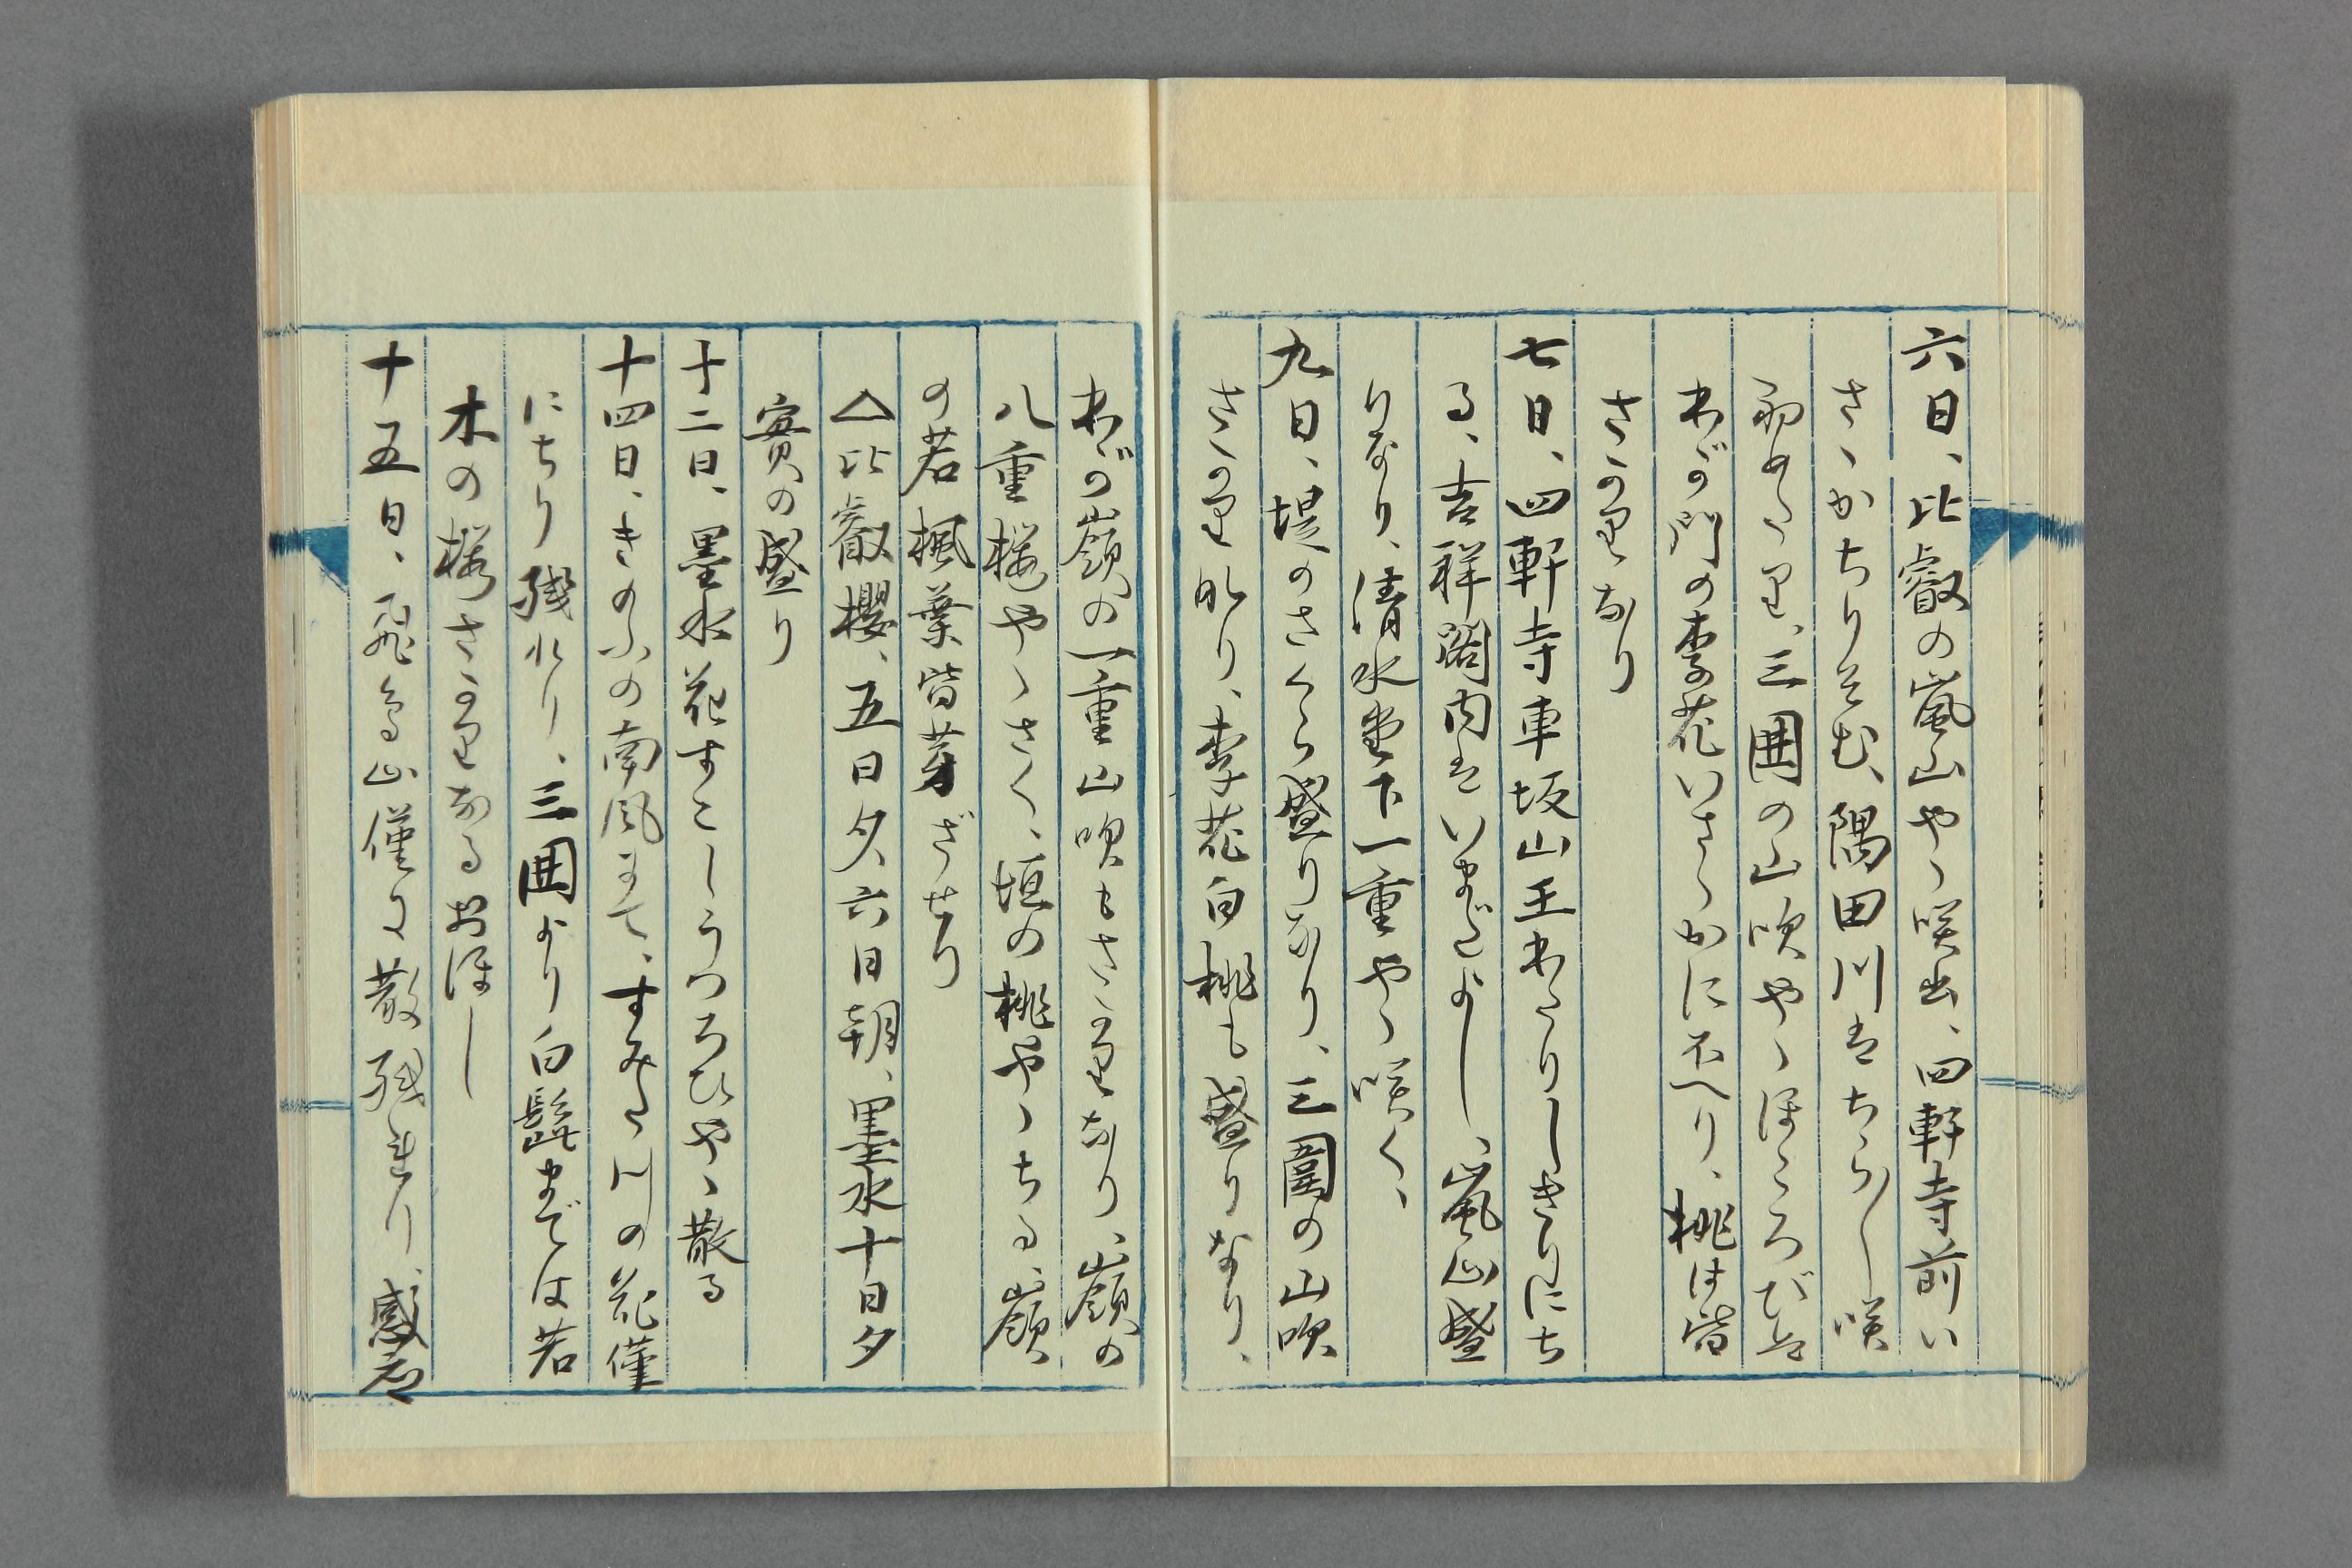 六日、比叡の嵐山やゝ咲出、四軒寺前い
さゝかちりそむ、隅田川はちらし咲
初めたり、三囲の山吹やゝほころび、
わが門の李花いさゝかに不へり、桃は皆
さかりなり
七日、四軒寺車坂山王わたりしきりにち
る、吉祥閣内はいまだよし、嵐山盛
りなり、清水堂下一重やゝ咲く、
九日、堤のさくら盛りなり、三圍の山吹
さかりなり、李花白桃も盛りなり、
わが嶺の一重山吹もさかりなり、嶺の
八重桜やゝさく、垣の桃やゝちる、嶺
の若楓葉皆芽ざせり
△比叡櫻、五日夕、六日朝、墨水十日夕
実の盛り
十二日、墨水花すこしうつろひやゝ散る
十四日、きのふの南風にて、すみだ川の花僅
にちり残れり、三囲より白髭までは若
木の桜さかりなるおほし
十五日、飛鳥山僅に散残れり、感應